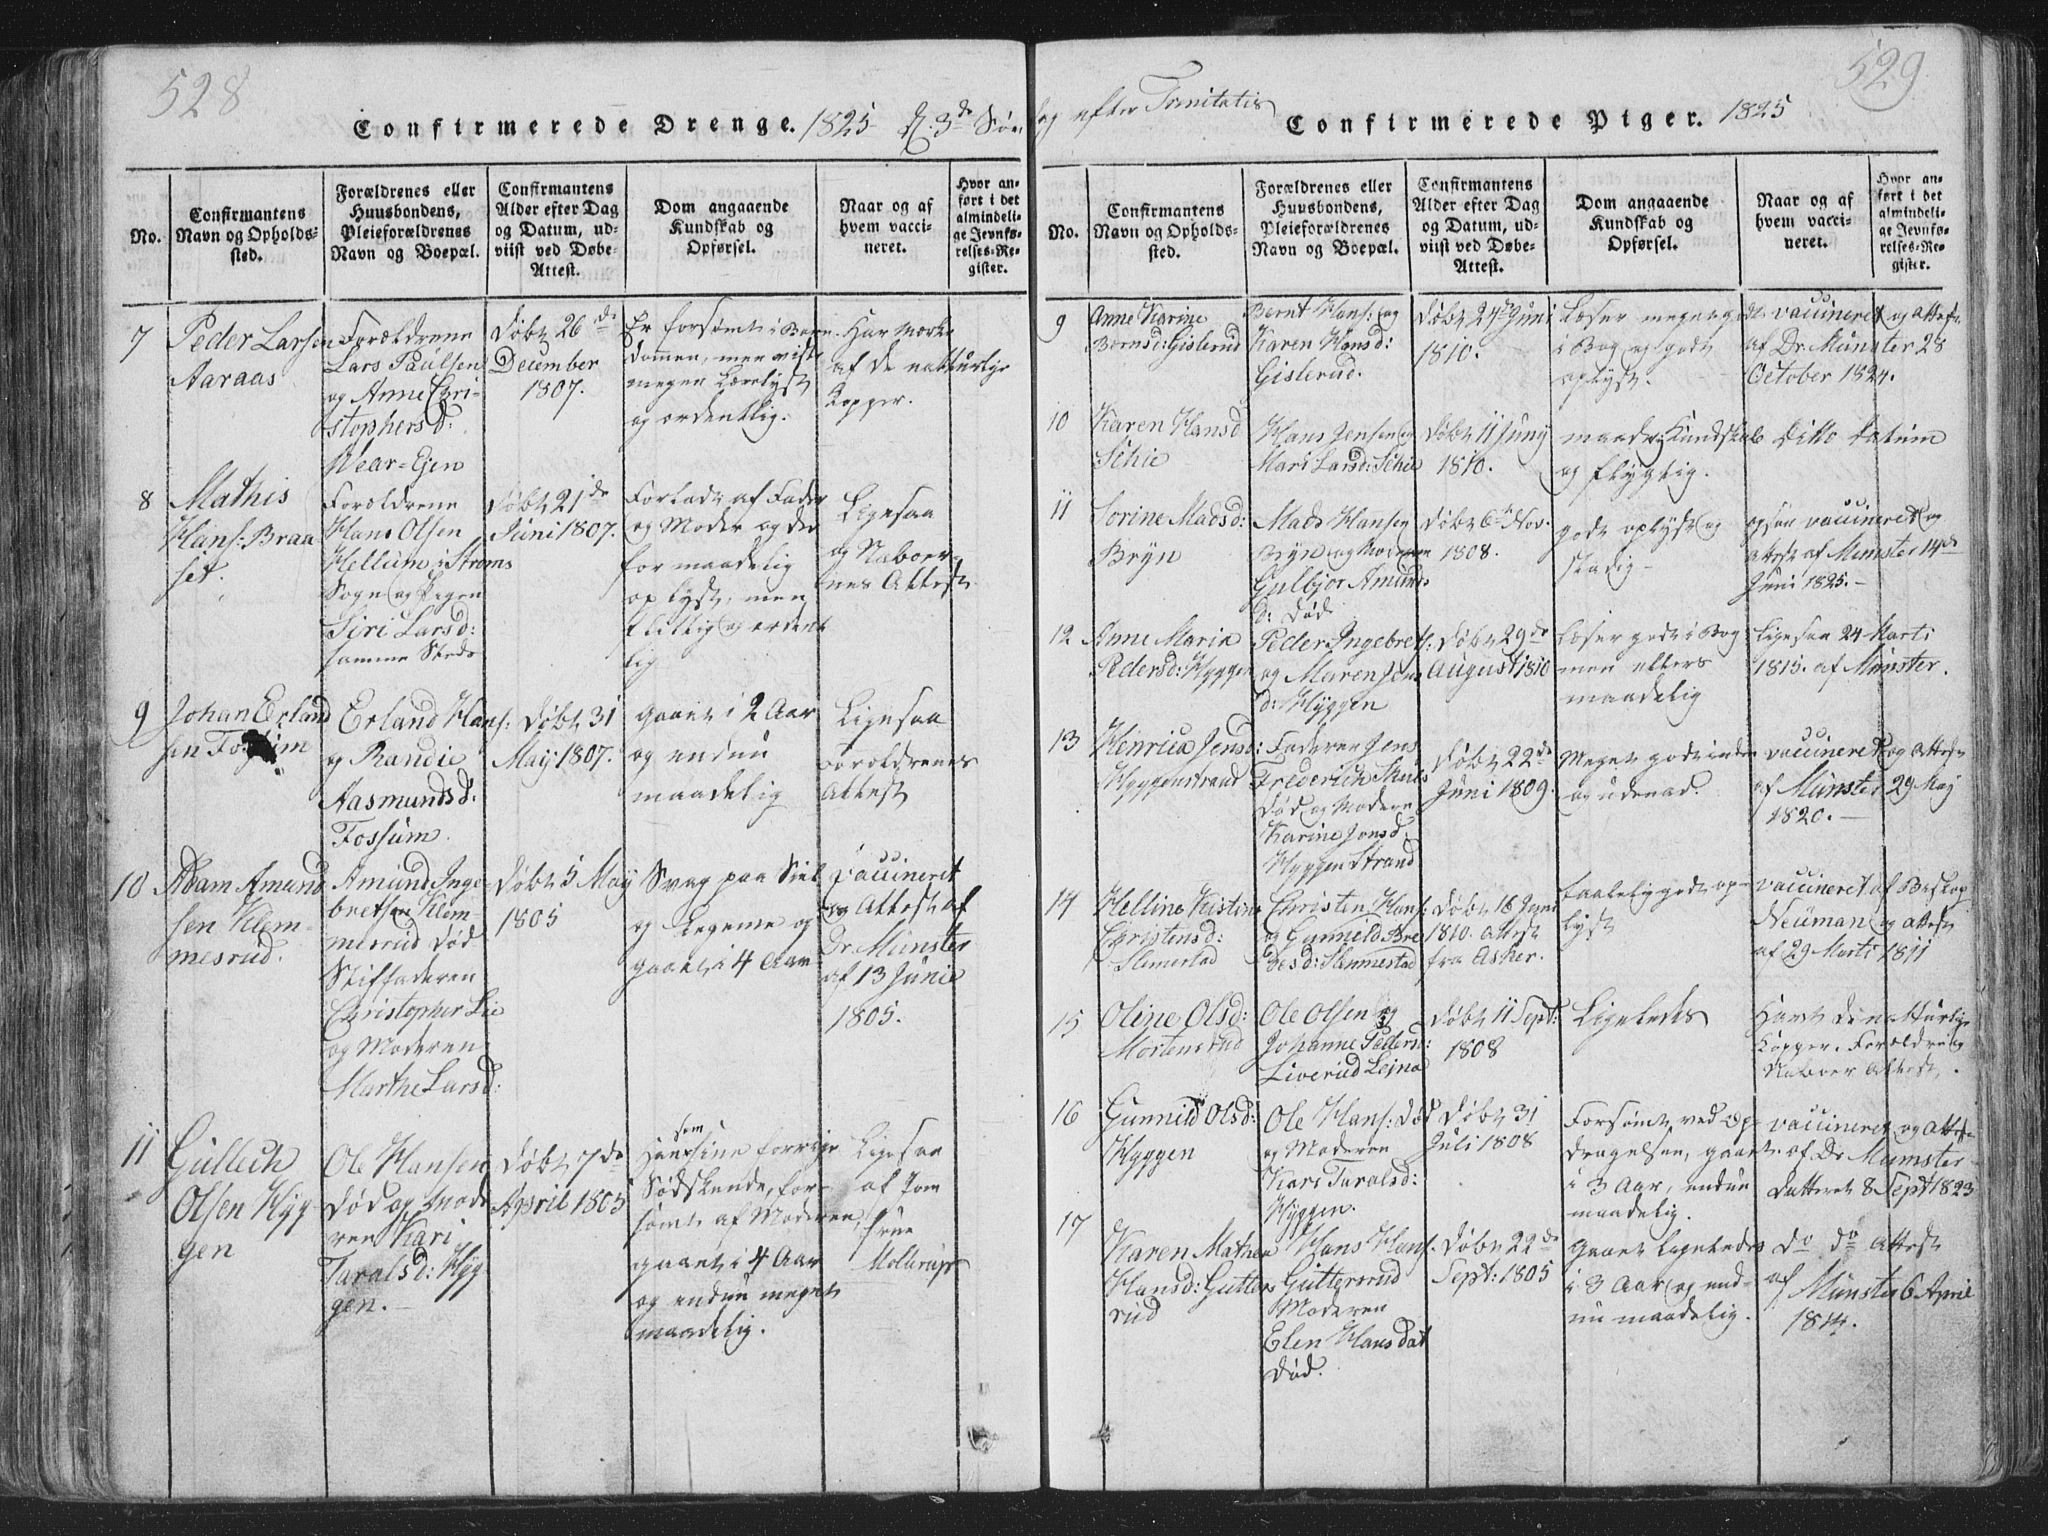 528
Confirmerede Drenge. 1825 d. 3de Søn
No.
Confirmantens
Navn og Opholds-
sted.
Forældrenes eller
Huusbondens,
Pleieforældrenes
Navn og Boepæl.
Confirmantens
Alder efter Dag
og Datum, ud-
viist ved Døbe-
Attest.
Dom angaaende
Kundskab og
Opførsel.
Naar og af
hvem vacci-
neret.
Hvor an-
ført i det
almindeli-
ge Jevnfø-
relses-Re-
gister.
7
Peder Larsen
Aaraas
Forældrene
Lars Paulsen
og Anne Chri-
stophersd:
Wear-Ejen
Døbt 26de
December
1807.
Er forsømt i Barn-
dommen, men vist
megen Lærelyst
og ordentlig.
Har Mærke
af de natturlige
Kopper.
8
Mathis
Hans: Braa
set.
Forældrene
Hans Olsen
Hellum i Strøms
Sogn og Pigen
Siri Larsd:
samme Steds
Døbt 21de
Juni 1807.
Forladt af Fader
og Moder og der
for maadelig
oplyst, men
flittig og ordent
lig
Ligesaa
og Naboer-
nes Attest
9
Johan Erland
sen Fossum
Erland Hans:
og Randie
Aasmundsd:
Fossum.
Døbt 31
May 1807.
gaaet i 2 Aar
og endnu
maadelig
Ligesaa
Forældrenes
Attest
10
Adam Amund
sen Klem-
mesrud.
Amund Inge-
bretsen Klem-
mesrud Død
Stiffaderen
Christopher Lie
og Moderen
Marthe Larsd:
Døbt 5 May
1805
Svag paa Siel
og Legeme og
gaaet i 4 Aar
Vaccineret
og Attest af
Dr. Münster
af 13 Junie
1805.
11
Gullech
Olsen Hyg
gen
Ole Hansen
Død og Mode
ren Kari
Taralsd: Hyg
gen.
Døbt 7de
April 1805
som
Hans sine forrige
Sødskende, for-
sømt af Moderen,
gaaet i 4 Aar
og endnu meget
maadelig.
Ligesaa
af Jom
frue
Moltrup
529
ag efter Trinitatis
Confirmerede Piger. 1825
No.
Confirmantens
Navn og Opholds-
sted.
Forældrenes eller
Huusbondens,
Pleieforældrenes
Navn og Boepæl.
Confirmantens
Alder efter Dag
og Datum, ud-
viist ved Døbe-
Attest.
Dom angaaende
Kundskab og
Opførsel.
Naar og af
hvem vacci-
neret.
Hvor an-
ført i det
almindeli-
ge Jevnfø-
relses-Re-
gister.
9
Anne Karine
Bernsd: Gislerud
Bernt Hans: og
Karen Hansd:
Gislerud.
Døbt 24de Juni
1810.
Læser meget godt
i Bog og godt
oplyst.
vaccineret og Attest
af Dr. Münster 28
October 1824.
10
Karen Hansd
Schie
Hans Jensen og
Mari Larsd: Schie
Døbt 11 Juny
1810.
maadl: Kundskab
og flygtig.
Ditto Datum
11
Sorine Madsd:
Bryn
Mads Hansen
Bryn og Moderen
Gulbjør Amunds
d: Død
Døbt 6te Nov.
1808.
godt oplyst og
stadig
ogsaa vaccineret og
Attest af Münster 14de
Juni 1825.
12
Anne Maria
Pedersd: Hyggen
Peder Ingebrets:
og Maren Jens
d: Hyggen
Døbt 29de
August 1810
Læser godt i Bog
men ellers
maadelig
Ligesaa 24 Marti
1815. af Münster.
13
Hinrica Jensd:
Hyggenstrand
Faderen Jens
Frederich
Død og Moderen
Karine Jonsd:
Hyggen Strand
Døbt 22de
Juni 1809.
Meget godt inden
og udenad.
vaccineret og Attest
af Münster 29 May
1820.
14
Helline Kistine
Christensd:
Slemestad
Christen Hans:
og Gunneld Bre
desd: Slemmestad
Døbt 16 Juni
1810. Attest
fra Asker.
taalelig godt op-
lyst
vaccineret af Biskop
Neuman og attest
af 29 Marti 1811
15
Oline Olsd:
Mortensrud
Ole Olsen og
Johanne Pedersd:
Liverud Lejna
Døbt 11 Sept:
1808
Ligeledes
Havt de natturlige
Kopper. Forældre og
Naboer Attest.
16
Gunnild Olsd:
Hyggen
Ole Hans: død
og Moderen
Kari Taralsd:
Hyggen.
Døbt 31
Juli 1808
Forsømt ved Op-
dragelsen, gaaet
i 3 Aar, endnu
maadelig.
vaccineret og Attest
af Dr Münster
Datteret 8 Sept 1823
17
Karen Mathea
Hansd: Gutters
rud
Hans Hans:
Guttersrud
Moderen
Elen Hansdat
Død.
Døbt 22de
Sept: 1805
Gaaet Ligeledes
i 3 Aar og end-
nu maadelig.
Do Do Attest
af Münster 6 April
1814.